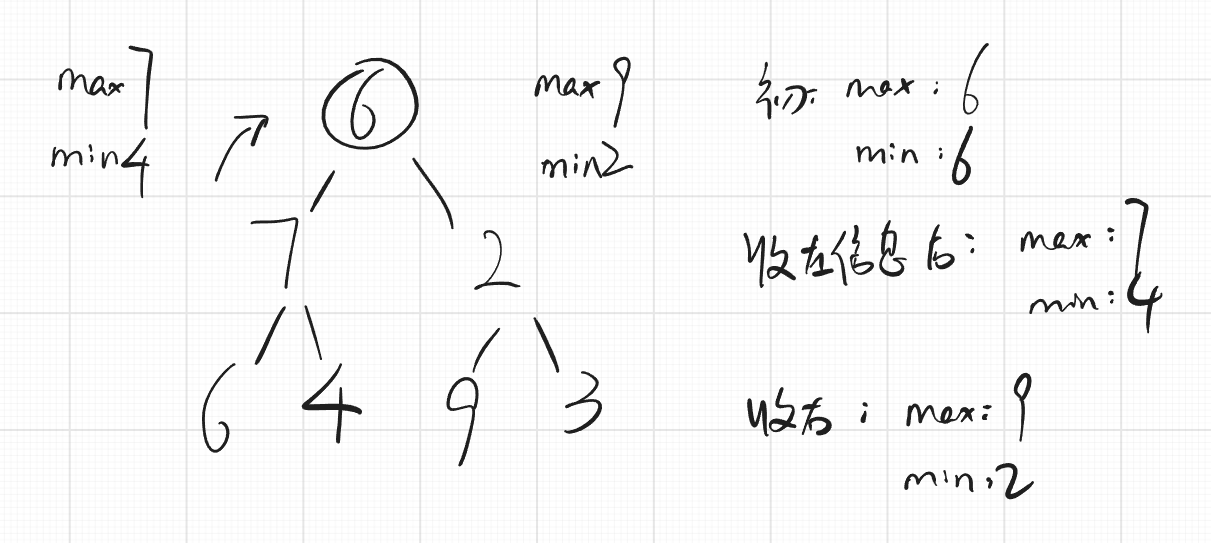 max 7
min 4
6
7
2
6
4
9
3
max 9
min 2
初始 max : 6
min : 6
收左信息后: max : 7
min : 4
收右 : max : 9
min : 2